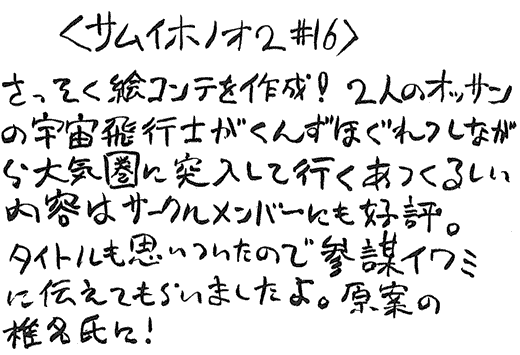 ＜サムイホノオ2 #16＞
さっそく絵コンテを作成！2人のオッサン
の宇宙飛行士がくんずほぐれつしなが
ら大気圏に突入して行くあつくるしい
内容はサークルメンバーにも好評。
タイトルも思いついたので参謀イワミ
に伝えてもらいましたよ。原案の
椎名氏に！